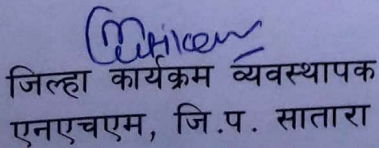 जिल्हा कार्यक्रम व्यवस्थापक
एनएचएम, जि.प. सातारा